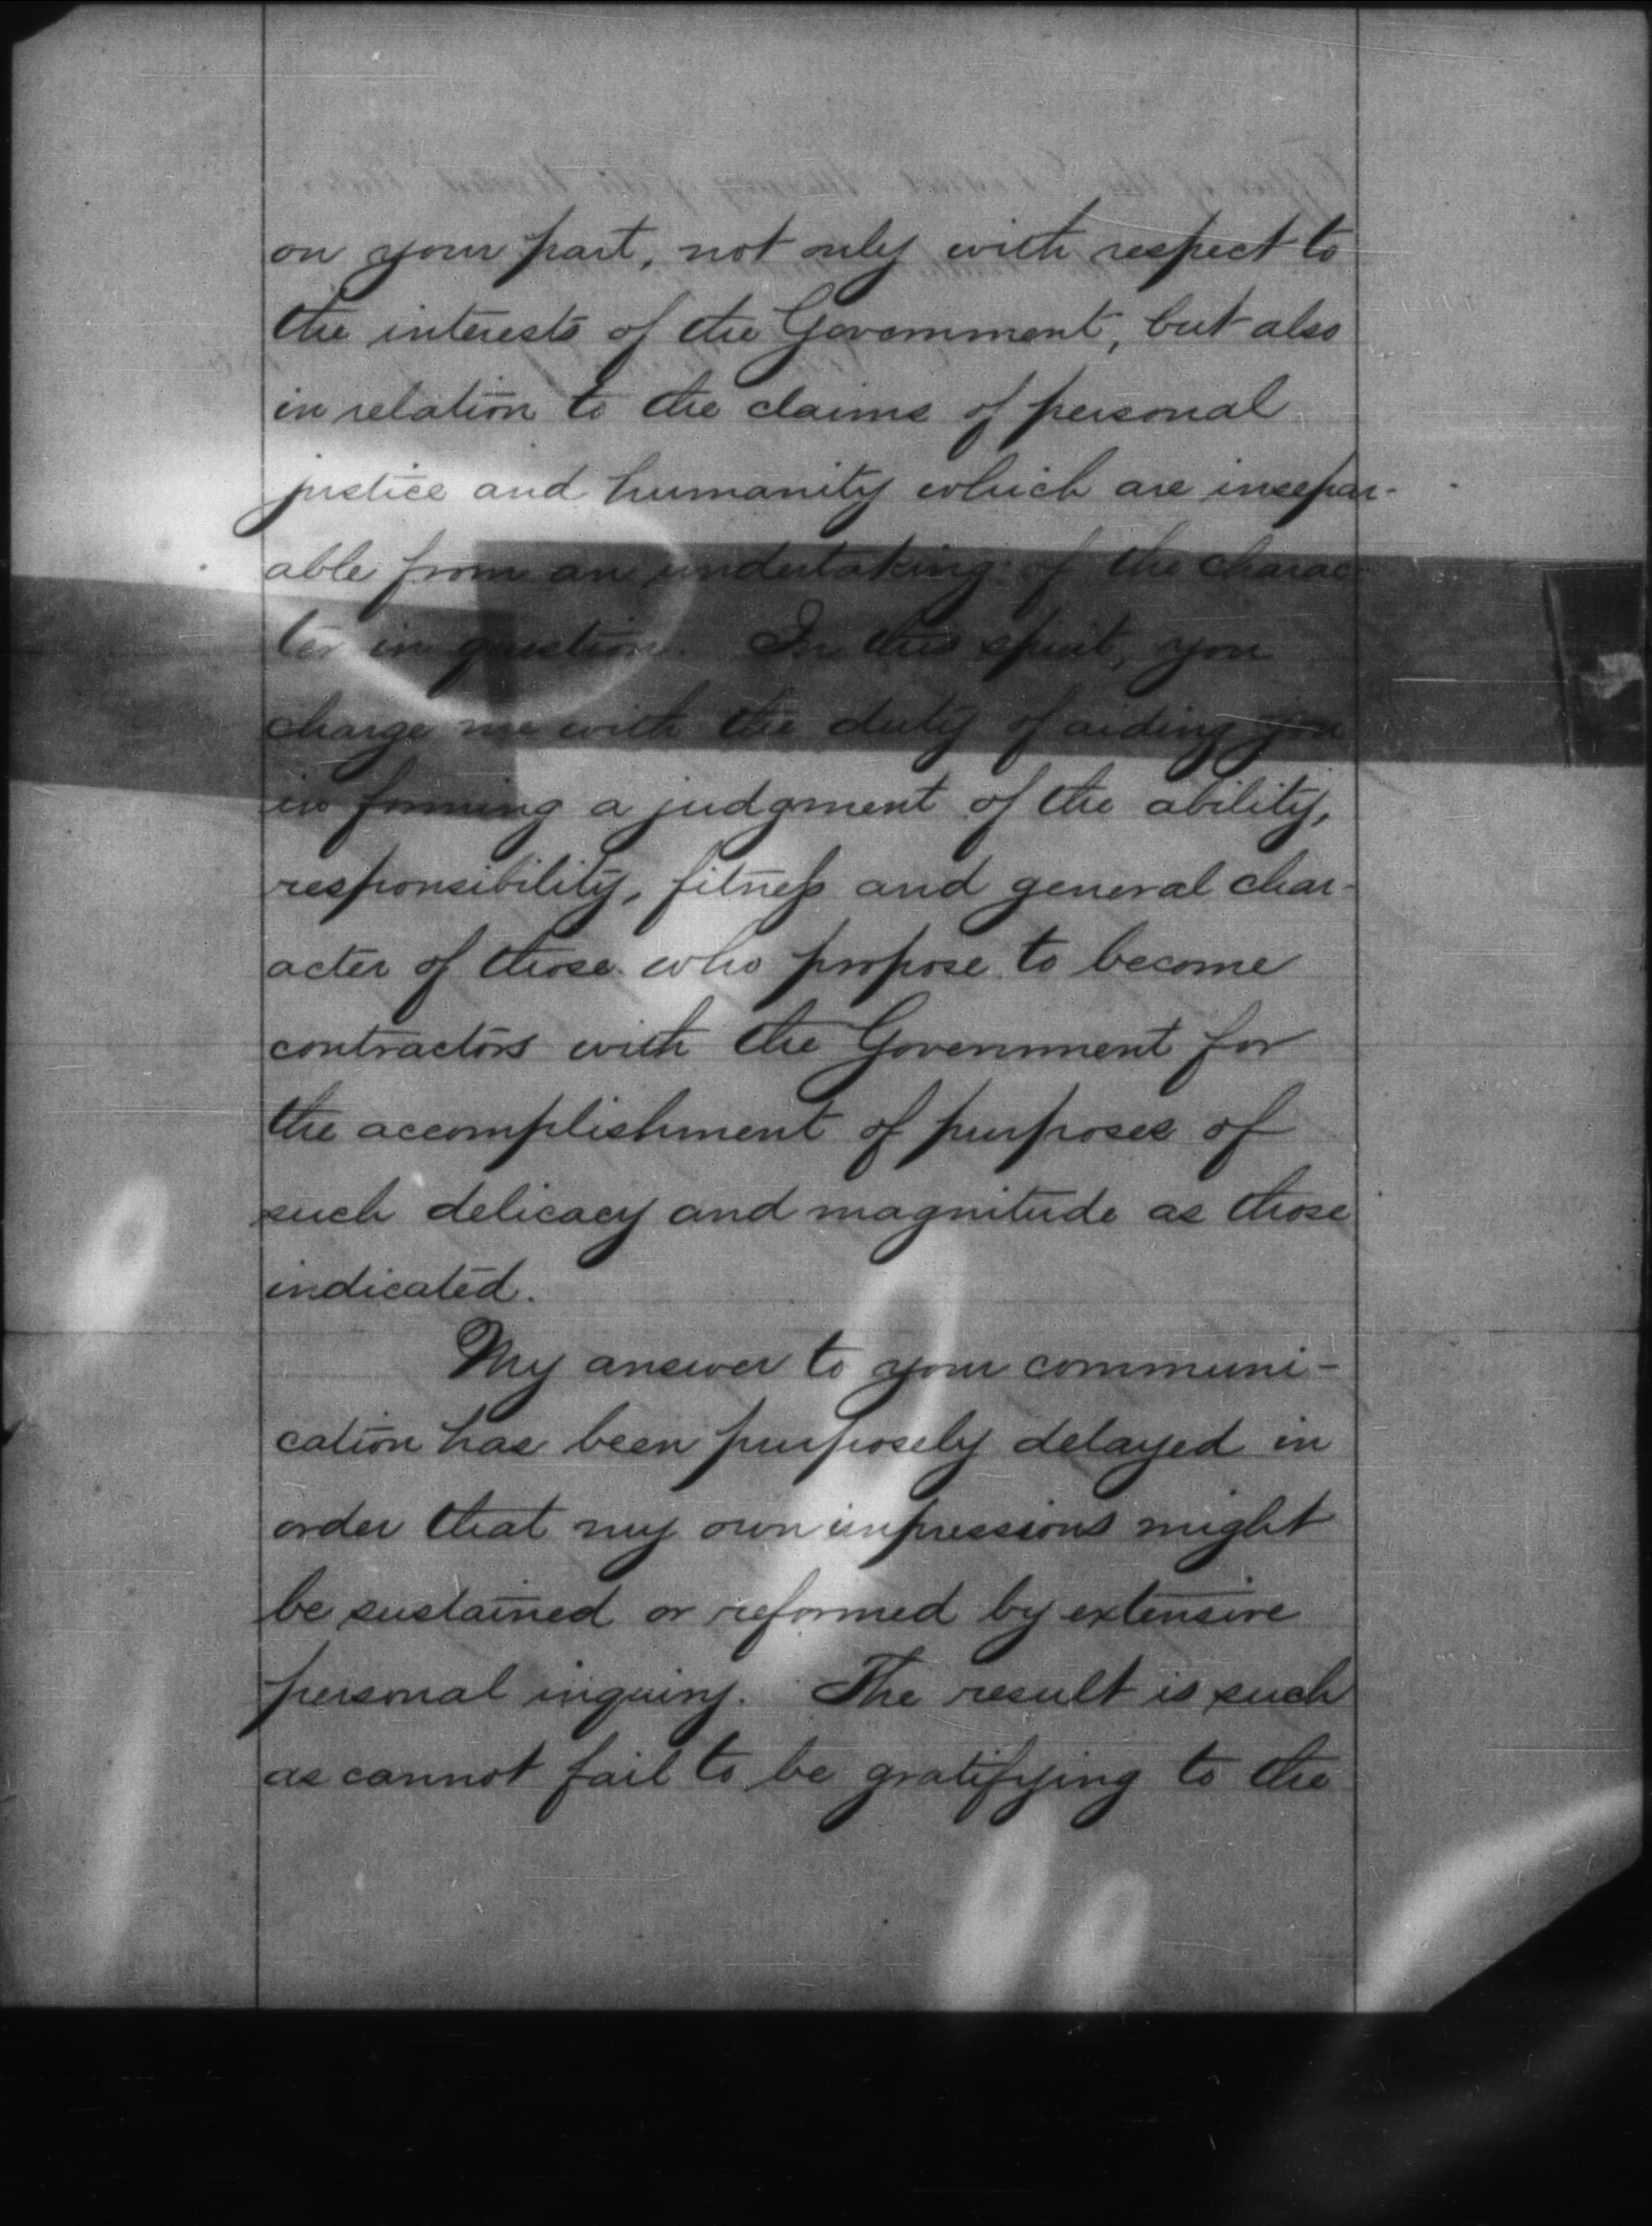 on your part, not only with respect to
the interests of the Government, but also
in relation to the claims of personal
justice and humanity which are insepar-
able from an undertaking of the charac-
ter in question. In this spirit, you
charge me with the duty of aiding you
in forming a judgment of the ability,
responsibility, fitness and general char-
acter of those who propose to become
contractors with the Government for
the accomplishment of purposes of
such delicacy and magnitude as those
indicated.
My answer to your communi-
cation has been purposely delayed in
order that my own impressions might
be sustained or reformed by extensive
personal inquiry. The result is such
as cannot fail to be gratifying to the